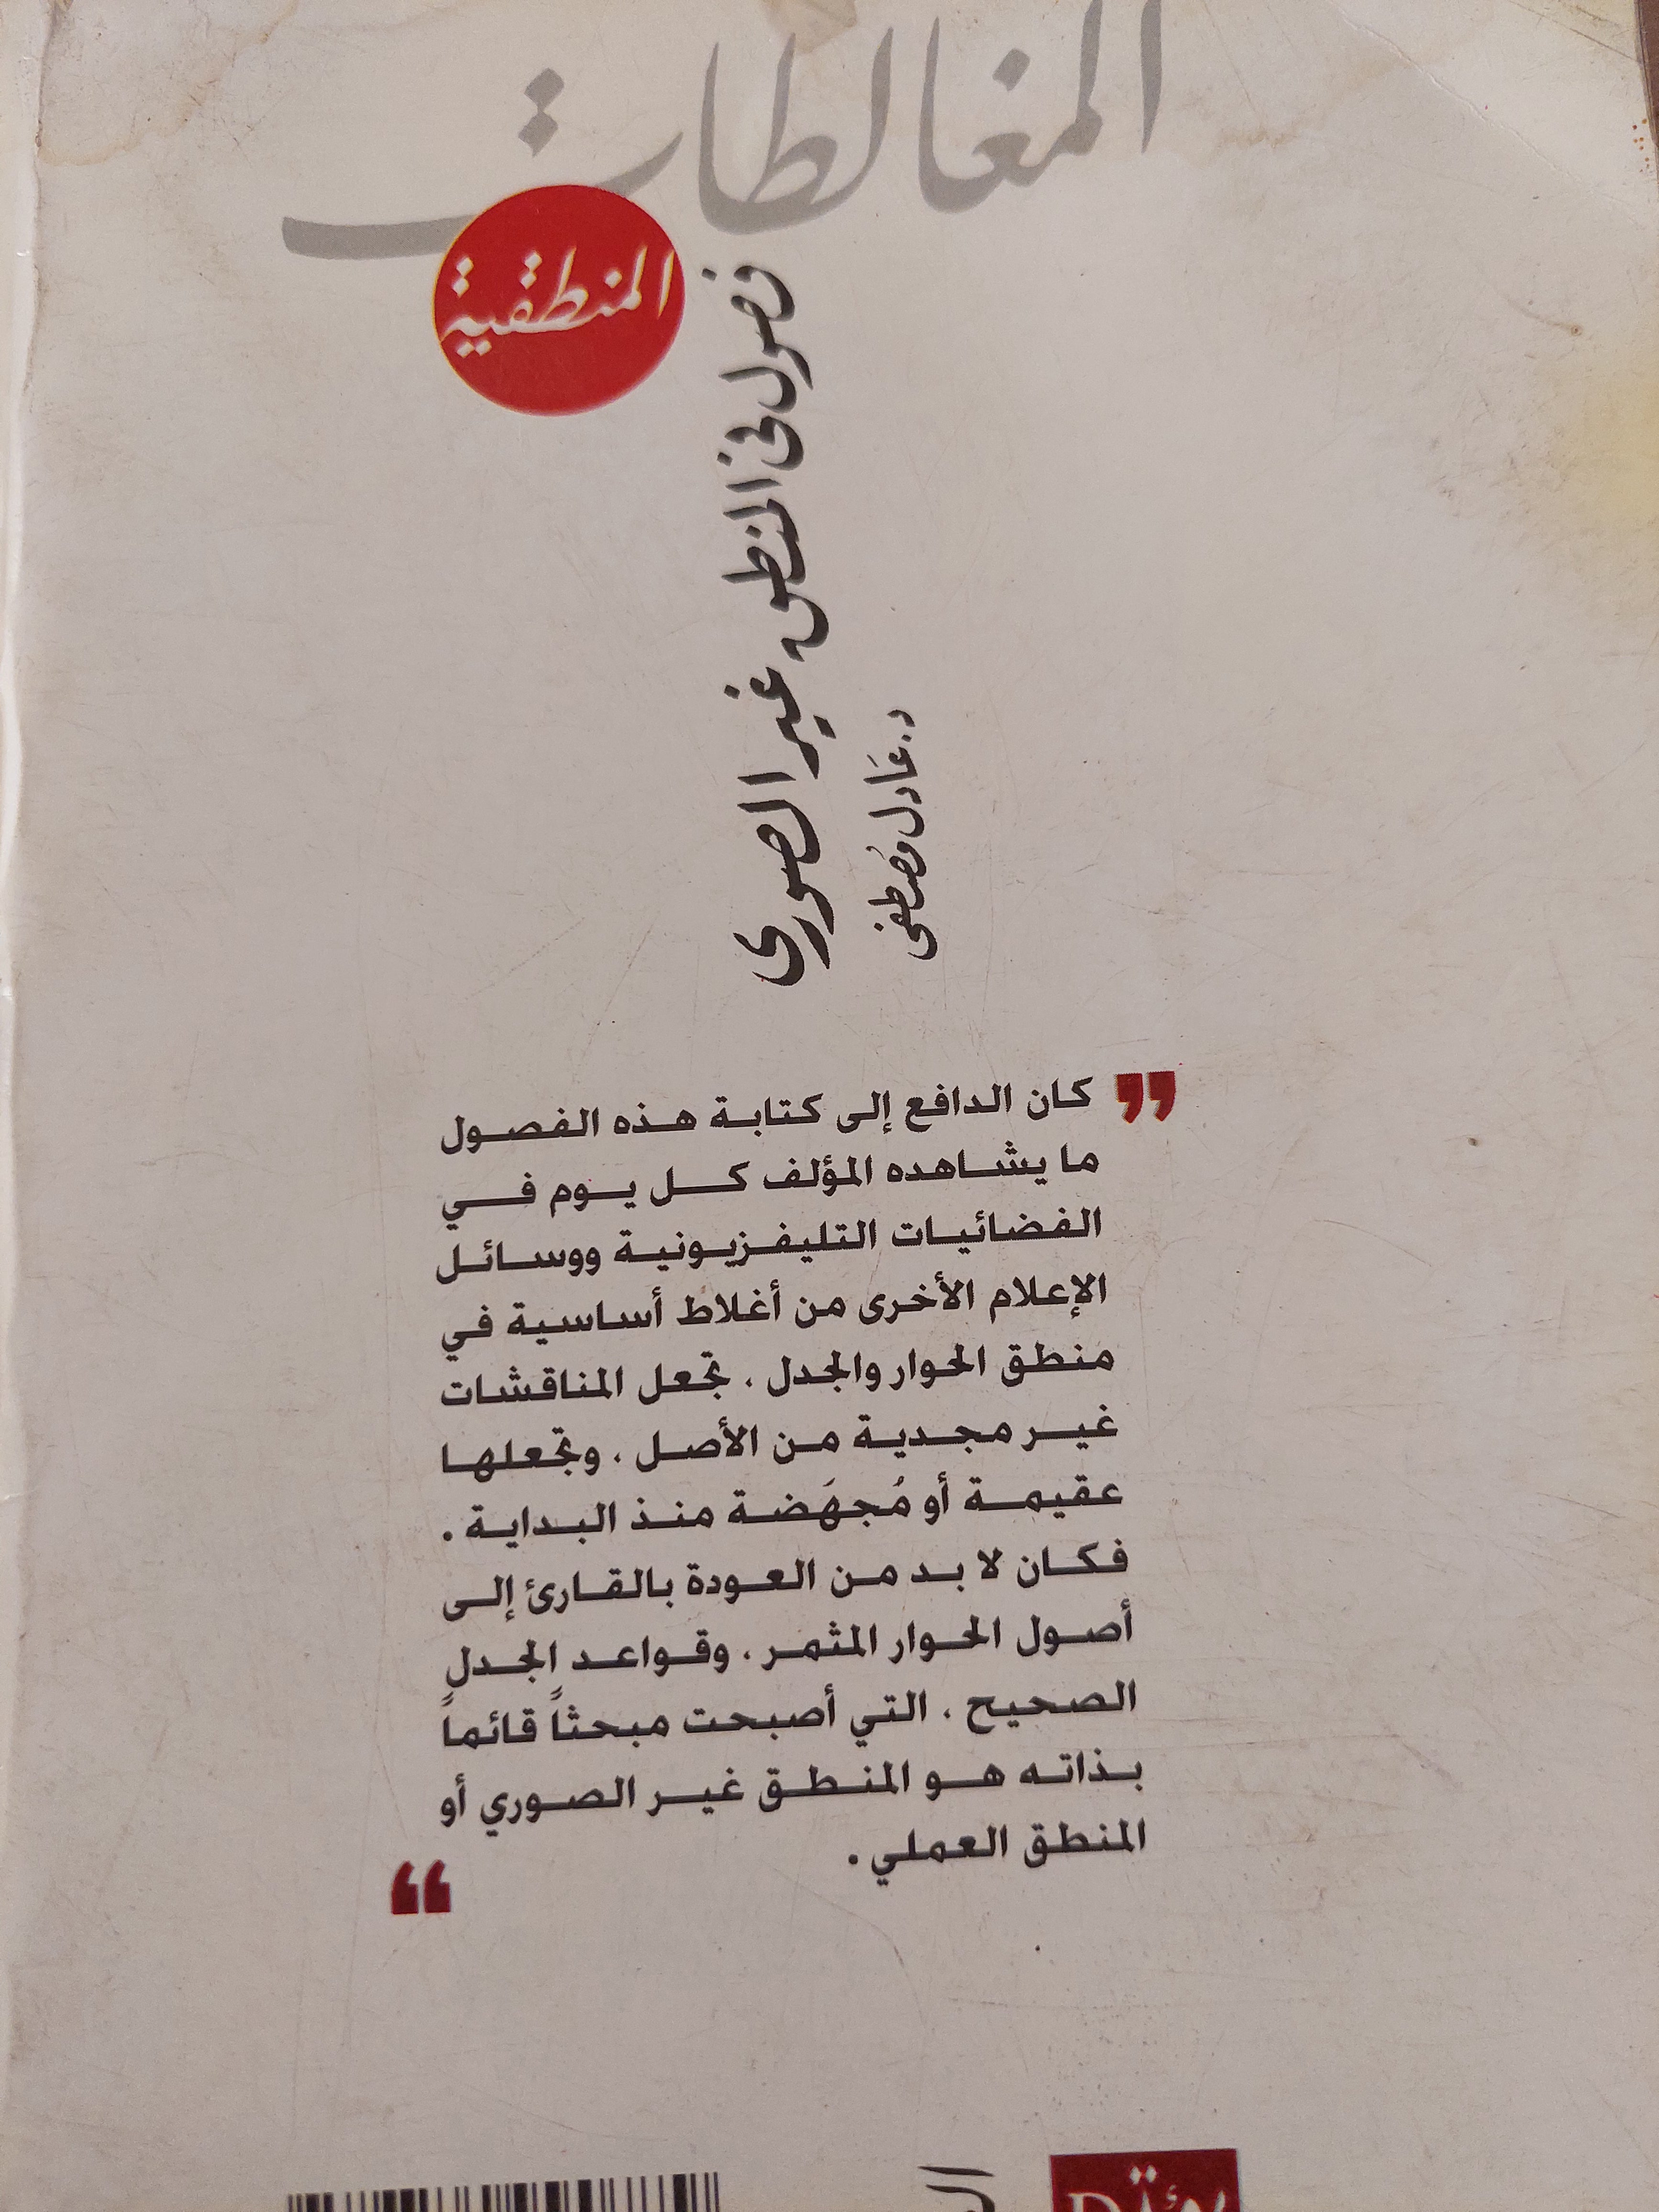 المغالطات
المنطقية
فصول في المنطق غير الصورى
د. عادل مصطفى
كان الدافع إلى كتابة هذه الفصول
ما يشاهده المؤلف كل يوم في
الفضائيات التليفزيونية ووسائل
الإعلام الأخرى من أغلاط أساسية في
منطق الحوار والجدل ، تجعل المناقشات
غير مجدية من الأصل ، وتجعلها
عقيمة أو مُجهَضة منذ البداية .
فكان لا بد من العودة بالقارئ إلى
أصول الحوار المثمر ، وقواعد الجدل
الصحيح ، التي أصبحت مبحثاً قائماً
بذاته هو المنطق غير الصوري أو
المنطق العملي .